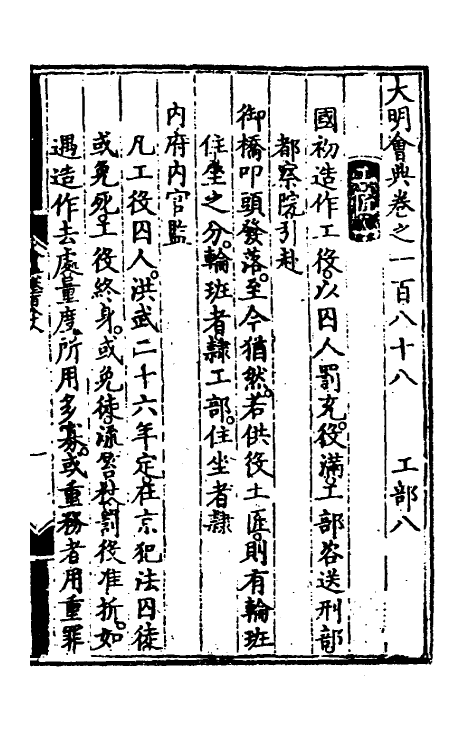 大明會典卷之一百八十八　工部八
工匠
國初造作工役以囚人罰充役滿工部咨送刑部
都察院引赴
御橋叩頭發落至今猶然若供役工匠則有輪班
住坐之分輪班者隸工部住坐者隸
内府内官監
凡工役囚人洪武二十六年定在京犯法囚徒
或免死工役終身或免徒流笞杖罰役准折如
遇造作去處量度所用多寡或重務者用重罪